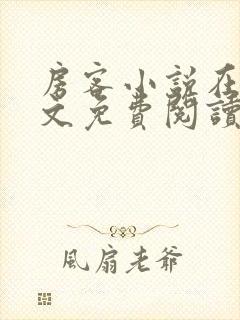 房客小说在
文免費閱讀
風扇老爺